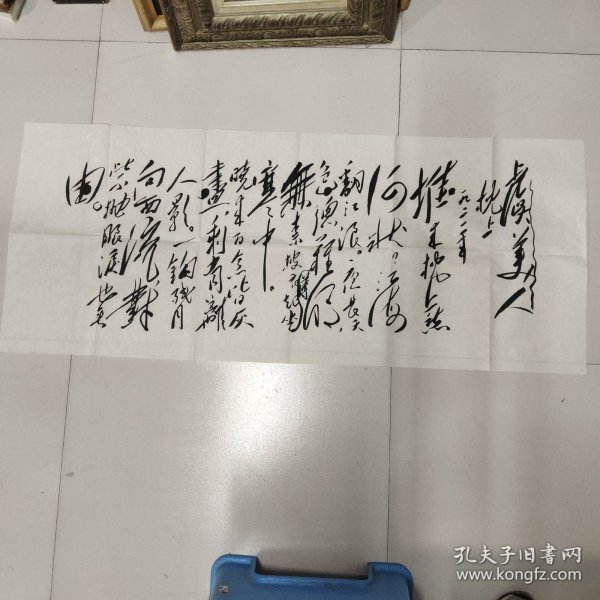 虞美人
枕上
一九二一年
堆来枕上愁
何状？江海
翻江浪。夜長天
色總難明
無奈披衣起坐
寒中。
曉来百念皆灰
盡剩有離
人影。一鈎残月
向西流對
此不抛眼淚也無
由。
孔夫子旧书网
www.kongfz.com